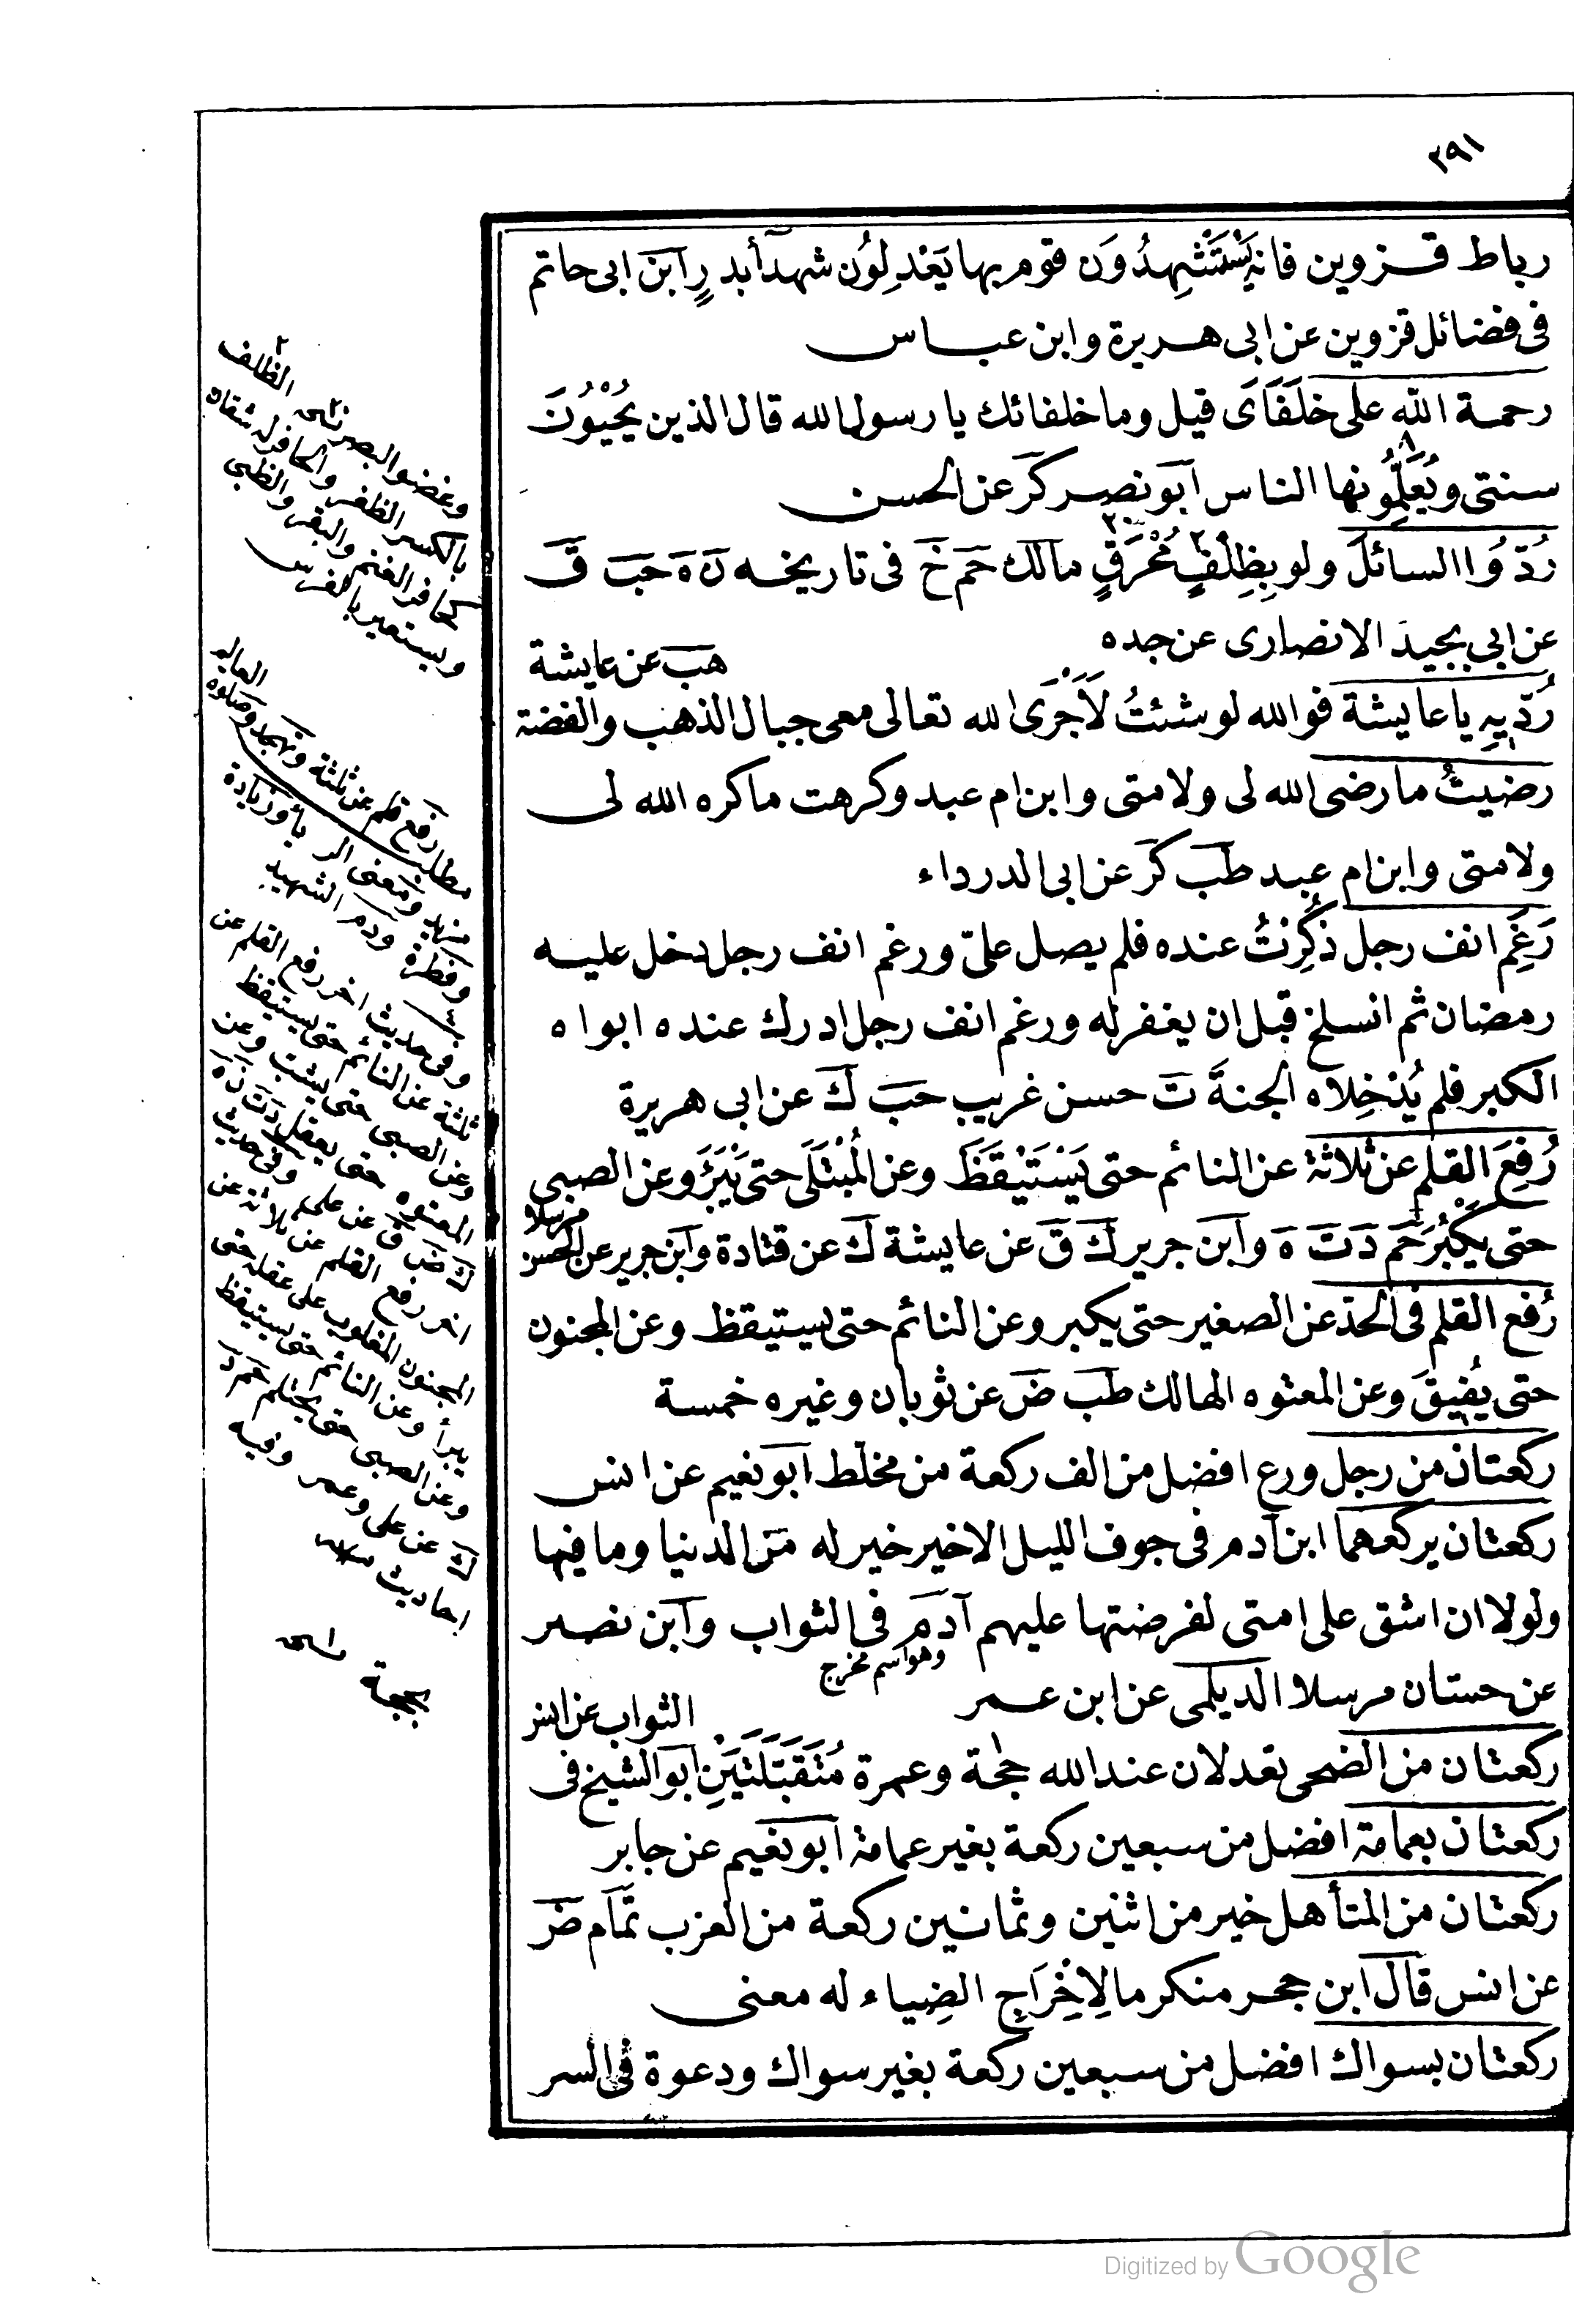 ٢٩١
رباط قزوين فانه يَسْتَشْهِدُونَ قوم بها يَعْدِلُون شهدآ بدرٍ ابن ابى حاتم
فى فضائل قزوين عن ابى هريرة وابن عباس
رحمة الله على خلَفَاَى قيل وما خلفائك يا رسول الله قال الذين يُحْيُونَ
سنتى ويُعَلِّمُونها الناس ابو نصر كر عن الحسن
رُدُّوا السائلَ ولو بِظِلْفٍ مُحْرَقٍ مالك حم خ فى تاريخه ن ه حب ق
عن ابى بجيد الانصارى عن جده
هب عن عايشة
رُدّيهِ يا عايشة فوالله لو شئتُ لَاَجْرَى الله تعالى معى جبال الذهب والفضة
رضيتُ ما رضى الله لى ولامتى وابن ام عبد وكرهت ما كره الله لى
ولامتى وابن ام عبد طب كر عن ابى الدرداء
رَغِمَ انف رجل ذُكِرْتُ عنده فلم يصل علىّ ورغم انف رجل دخل عليه
رمضان ثم انسلخ قبل ان يغفر له ورغم انف رجل ادرك عنده ابواه
الكبر فلم يُدْخِلاه الجنةَ ت حسن غريب حب ك عن ابى هريرة
رُفِعَ القلم عن ثلاثة عن النائم حتى يَسْتَيْقَظَ وعن المُبْتَلَى حتى يَبْرَءَ وعن الصبى
حتى يكْبُرَ حم د ت ه وابن جرير ك ق عن عايشة ك عن قتادة وابن جرير عن الحسن
مرسلا
رُفع القلم فى الحدّ عن الصغير حتى يكبر وعن النائم حتى يستيقظ وعن المجنون
حتى يُفيقَ وعن المعتوه الهالك طب ض عن ثوبان وغيره خمسة
ركعتان من رجل ورع افضل من الف ركعة من مخلّط ابو نعيم عن انس
ركعتان يركعهما ابن آدم فى جوف الليل الاخير خير له من الدنيا وما فيها
ولولا ان اشق على امتى لفرضتها عليهم آدم فى الثواب وابن نصر
وهو اسم مخرج
عن حسّان مرسلا الديلمى عن ابن عمر
الثواب عن انس
ركعتان من الضحى تعدلان عند الله حجّة وعمرة مُتَقَبَّلَتَيْنِ ابو الشيخ فى
ركعتان بعمامة افضل من سبعين ركعة بغير عمامة ابو نعيم عن جابر
ركعتان من المتأهل خير من اثنين وثمانين ركعة من العزب تمّام ض
عن انس قال ابن حجر منكر ما لِاِخْرَاجِ الضِياء له معنى
ركعتان بسواك افضل من سبعين ركعة بغير سواك ودعوة فى السر
الظلف
بالكسر الظفر والحافر له شقان
كحافر الغنم والبقر والظبى
ويستعير بالفرس
مطلب رفع قلم عن ثلثة
وقطرة ودم الشهيد
وفى حديث اخر رفع القلم عن
ثلثة عن النائم حتى يستيقظ
وعن الصبى حتى يشب وعن
المعتوه حتى يعقل د ت ن ه
ك ض ق عن على وفى حديث
اخر رفع القلم عن ثلاثة عن
المجنون المغلوب على عقله حتى
يبرأ وعن النائم حتى يستيقظ
وعن الصبى حتى يحتلم حم د
ك عن على وعمر وفيه
احاديث
Digitized by Google